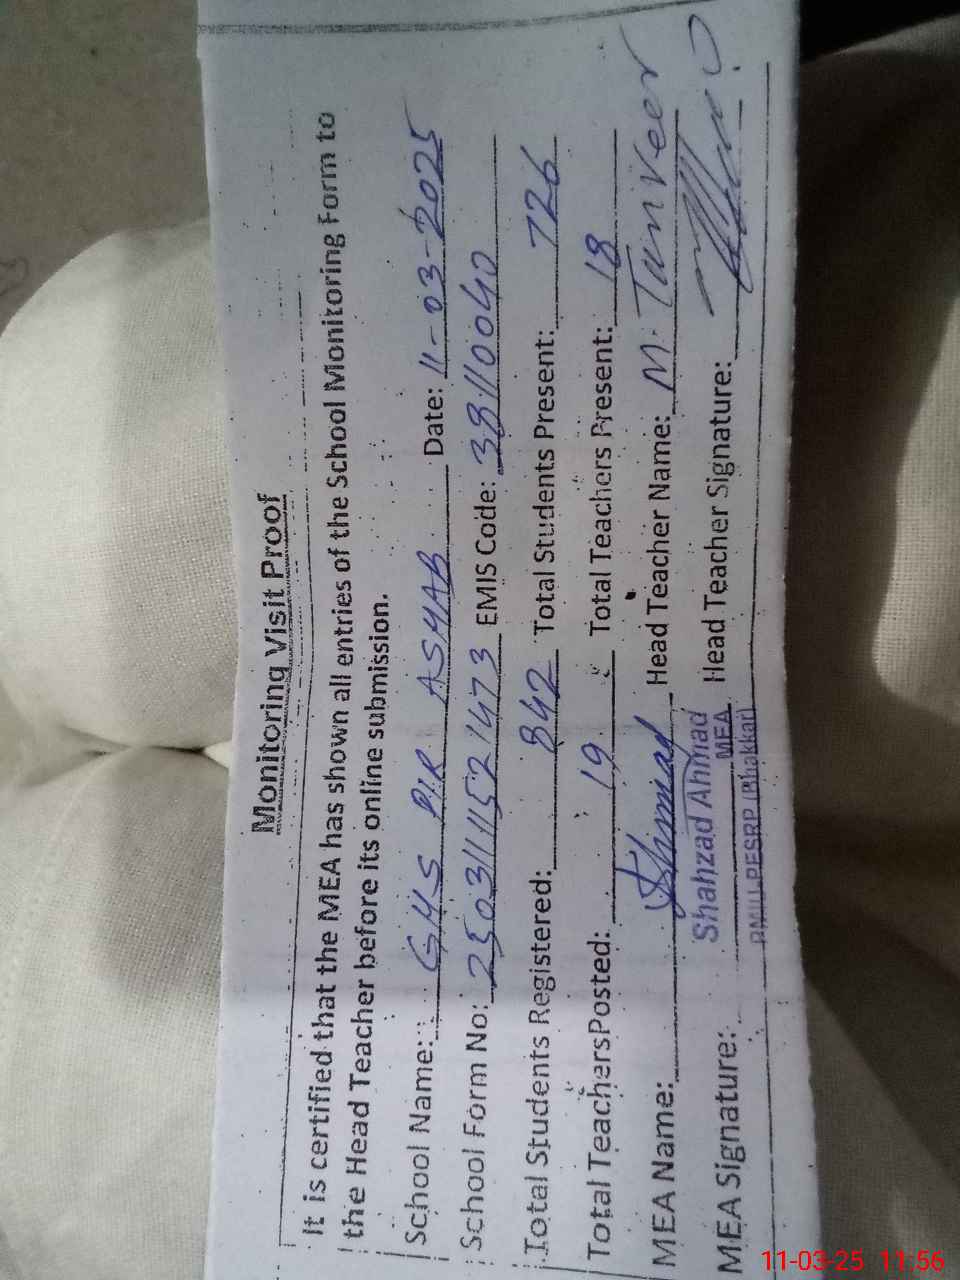 Monitoring Visit Proof
It is certified that the MEA has shown all entries of the School Monitoring Form to
the Head Teacher before its online submission.
School Name: GHS PIR ASHAB Date: 11-03-2025
School Form No: 25031111521473 EMIS Code: 38110040
Total Students Registered: 842 Total Students Present: 726
Total Teachers Posted: 19 Total Teachers Present: 18
MEA Name: Head Teacher Name: M. Tanveer
Shahzad Ahmad
MEA Signature: MEA Head Teacher Signature:
PMIU, PESRP (Bhakkar)
11-03-25 11:56